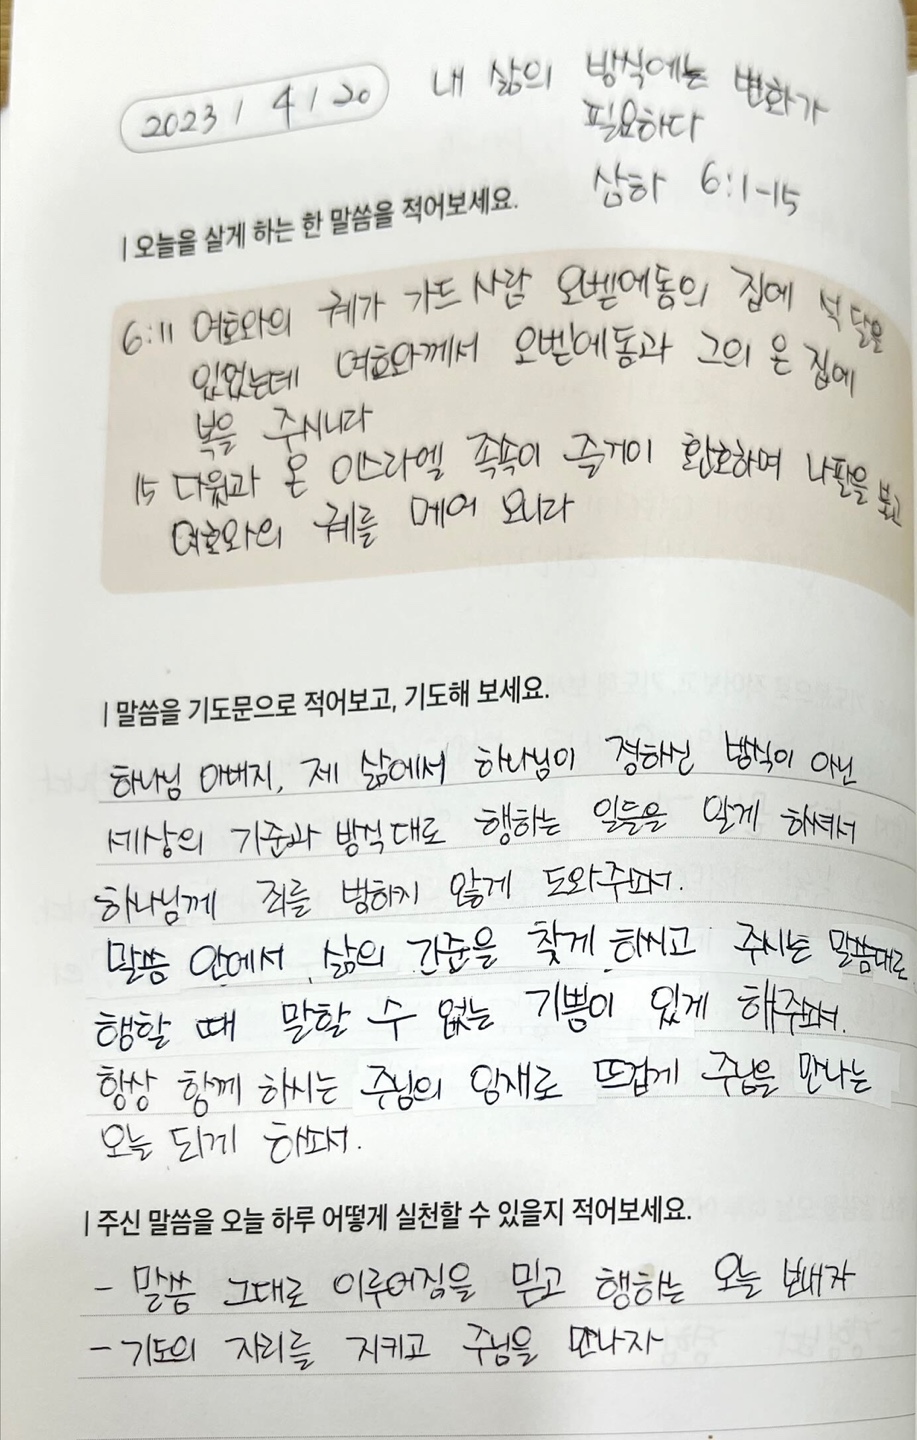 2023 / 4 / 20
내 삶의 방식에는 변화가
필요하다
삼하 6:1-15
| 오늘을 살게 하는 한 말씀을 적어보세요.
6:11 여호와의 궤가 가드 사람 오벧에돔의 집에 석 달을
있었는데 여호와께서 오벧에돔과 그의 온 집에
복을 주시니라
15 다윗과 온 이스라엘 족속이 즐거이 환호하며 나팔을 불고
여호와의 궤를 메어 오니라
| 말씀을 기도문으로 적어보고, 기도해 보세요.
하나님 아버지, 제 삶에서 하나님이 정하신 방식이 아닌
세상의 기준과 방식대로 행하는 일들을 알게 하셔서
하나님께 죄를 범하지 않게 도와주소서.
말씀 안에서 삶의 기준을 찾게 하시고 주시는 말씀대로
행할 때 말할 수 없는 기쁨이 있게 해주소서.
항상 함께 하시는 주님의 임재로 뜨겁게 주님을 만나는
오늘 되게 하소서.
| 주신 말씀을 오늘 하루 어떻게 실천할 수 있을지 적어보세요.
- 말씀 그대로 이루어짐을 믿고 행하는 오늘 보내자
- 기도의 자리를 지키고 주님을 만나자